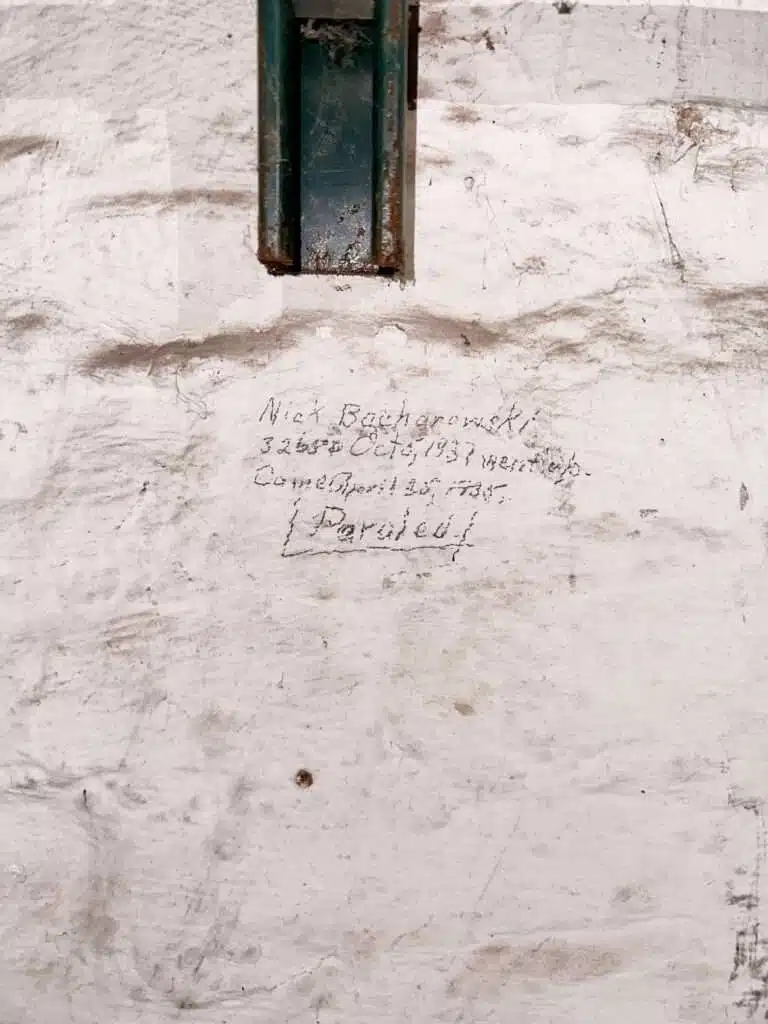 Nick Bacharowski
Oct 6, 1937 went up.
Came April
Paroled